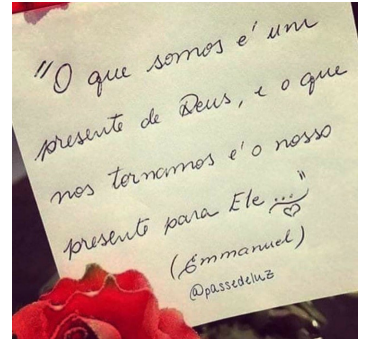 "O que somos é um
presente de Deus, e o que
nos tornamos é o nosso
presente para Ele..."
(Emmanuel)
@passedeluz